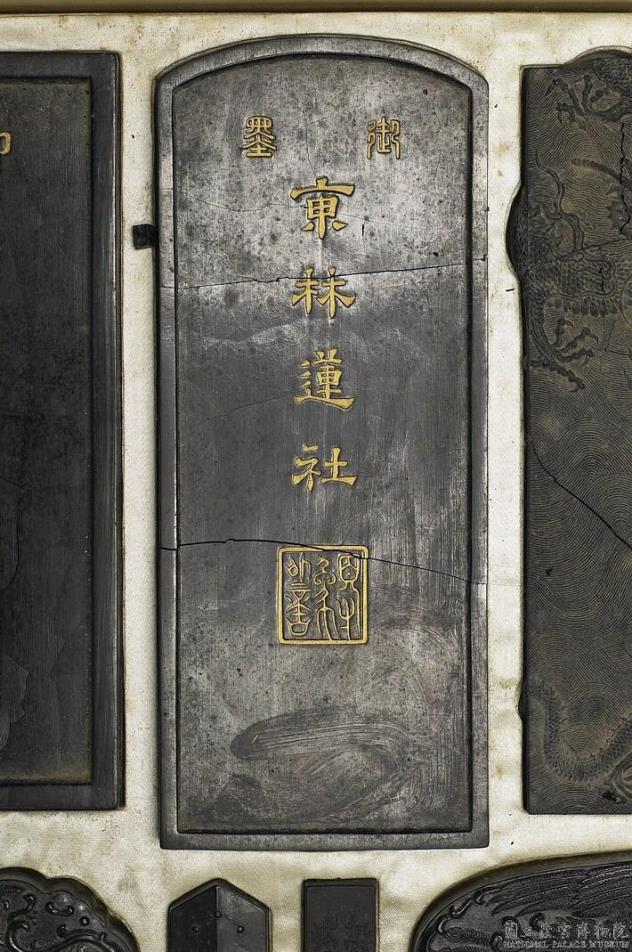 御墨
東林蓮社
國立故宮博物院
NATIONAL PALACE MUSEUM